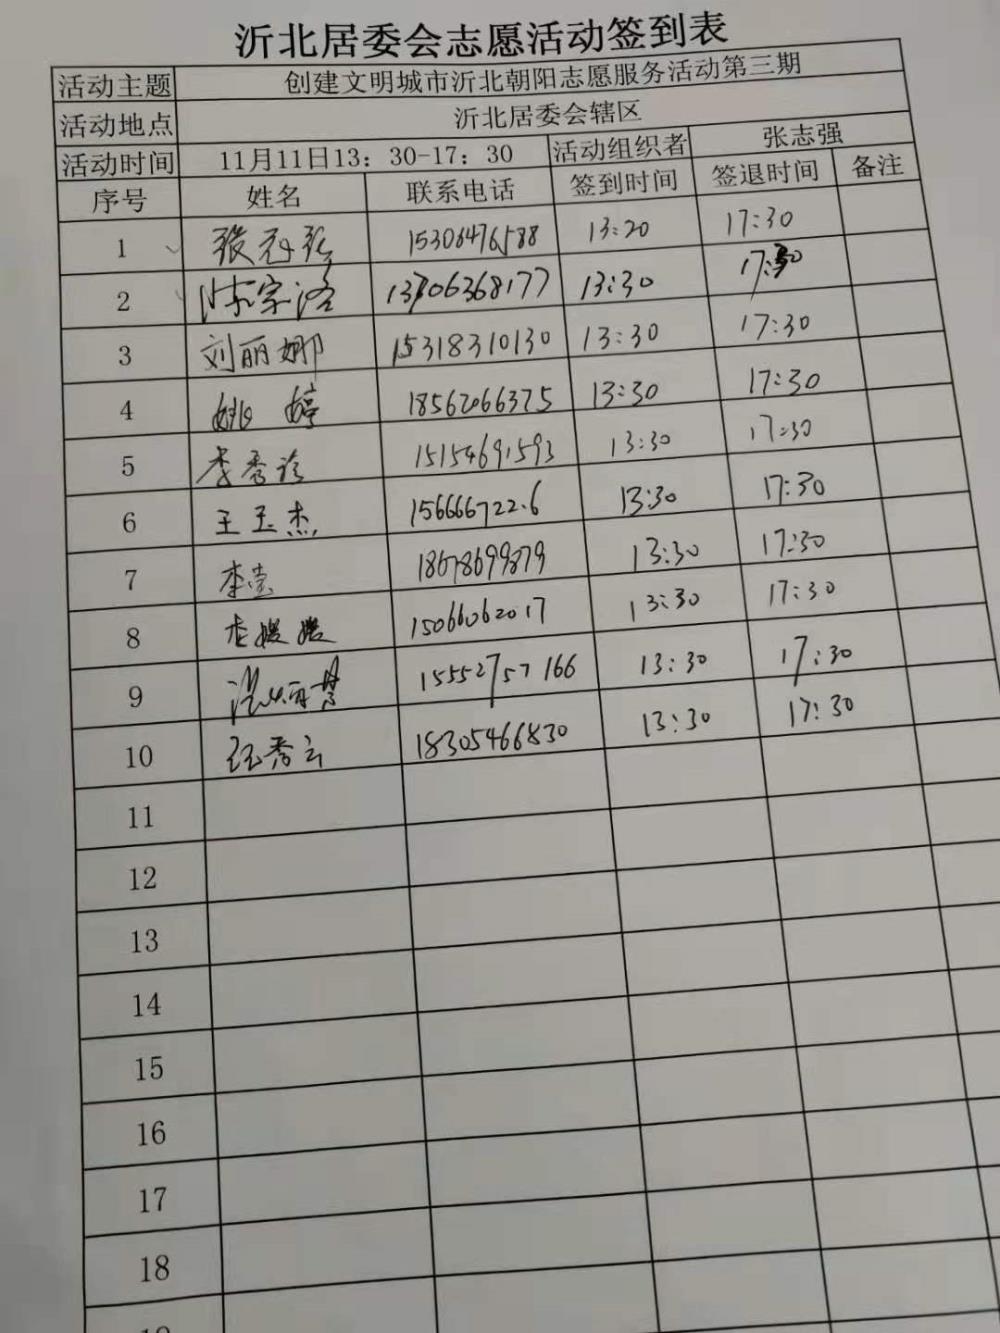 沂北居委会志愿活动签到表
活动主题 创建文明城市沂北朝阳志愿服务活动第三期
活动地点 沂北居委会辖区
活动时间 11月11日13：30-17：30 活动组织者 张志强
序号 姓名 联系电话 签到时间 签退时间 备注
1 15306476588 13:20 17:30
2 13706368177 13:30 17:30
3 刘丽娜 15318310130 13:30 17:30
4 姚婷 18562066375 13:30 17:30
5 李秀珍 15154691593 13:30 17:30
6 王玉杰 13:30 17:30
7 李莹 18678699879 13:30 17:30
8 13:30 17:30
9 15552757166 13:30 17:30
10 秀云 18305466830 13:30 17:30
11
12
13
14
15
16
17
18